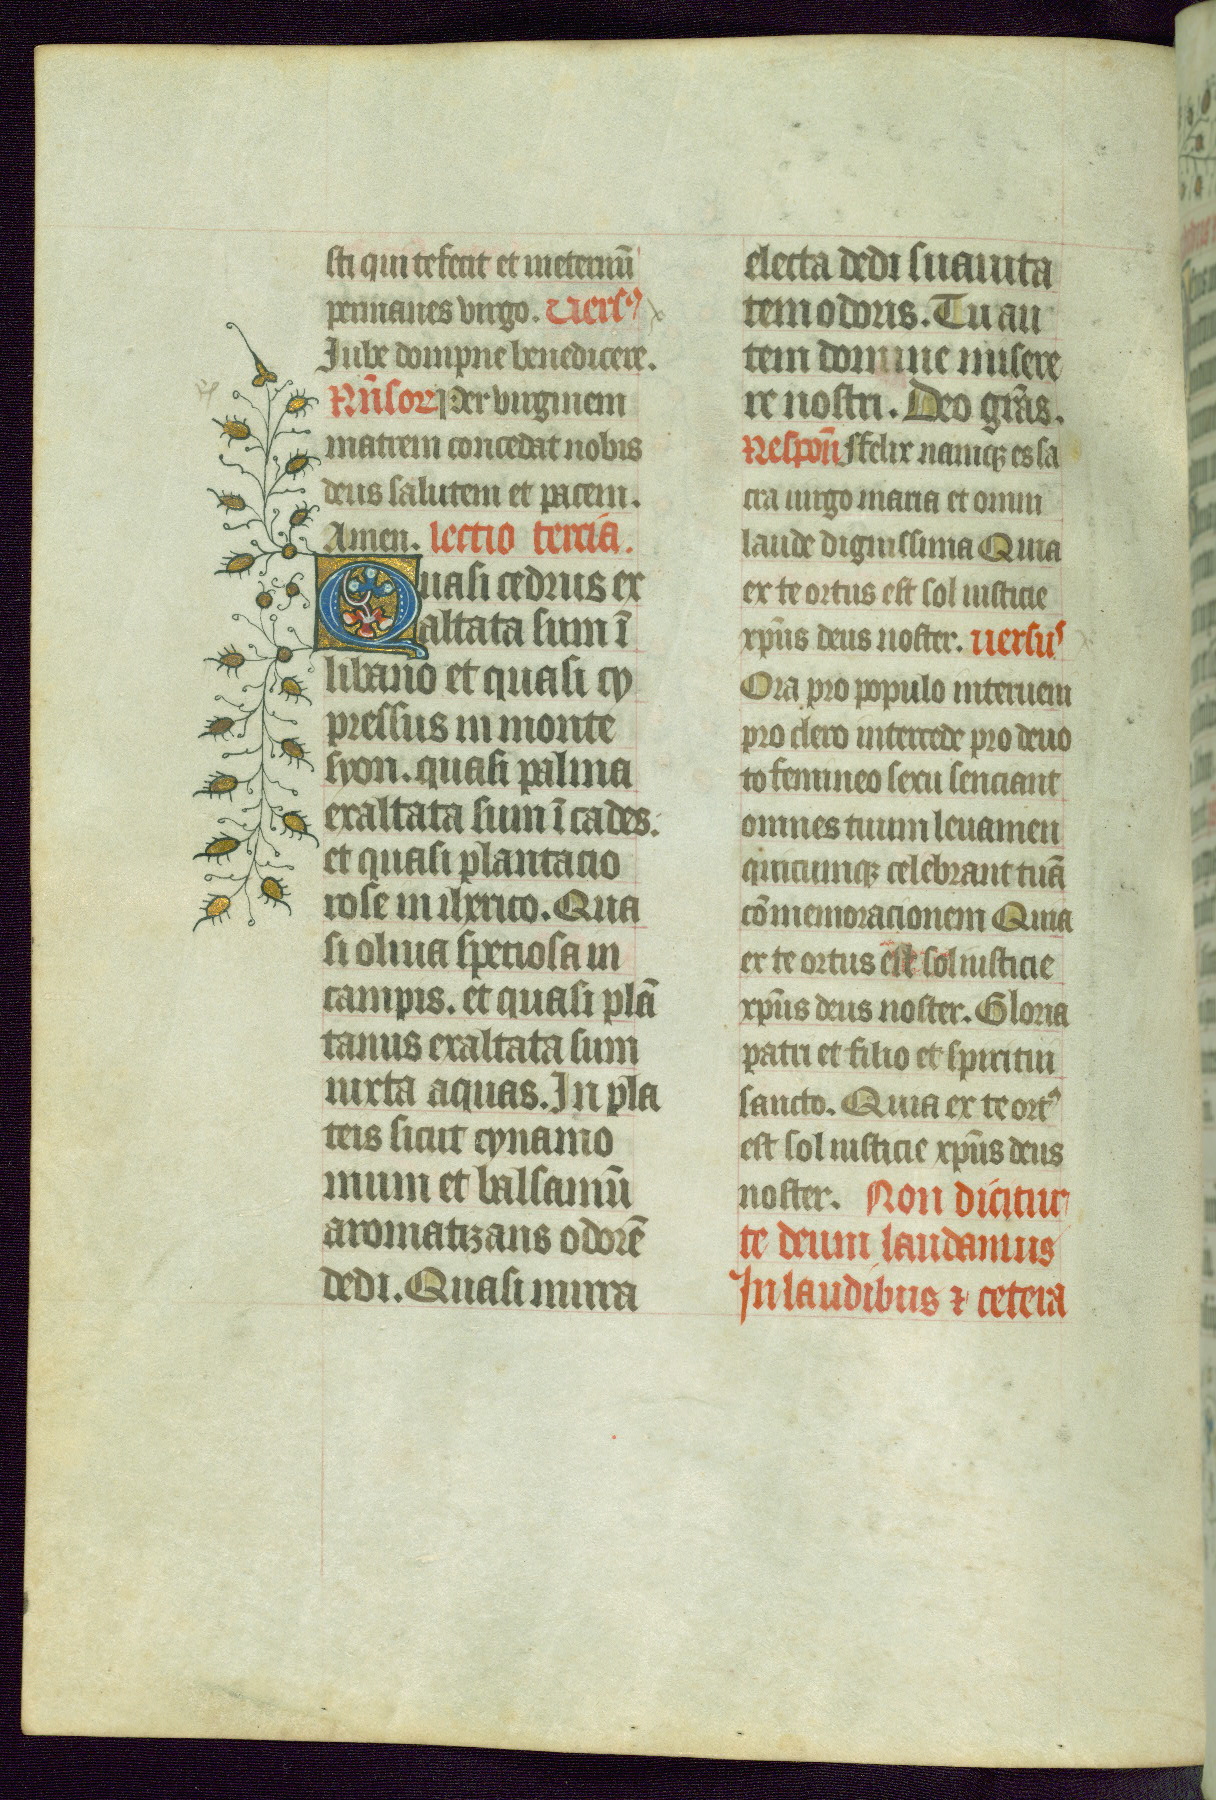 sti qui te fecit et ineternū
permanes virgo. Uersꝰ
Iube dompne benedicere.
Per virginem
matrem concedat nobis
deus salutem et pacem.
Amen. lectio tercia.
Quasi cedrus ex
altata sum ī
libano et quasi cy
pressus in monte
syon. quasi palma
exaltata sum ī cades.
et quasi plantacio
rose in iherico. Qua
si oliua speciosa in
campis. et quasi plā
tanus exaltata sum
iuxta aquas. In pla
teis sicut cynamo
mum et balsamū
aromatizans odorē
dedi. Quasi mirra
electa dedi suauita
tem odoris. Tu au
tem domine misere
re nostri. Deo grās.
Respoñ ffelix namqꝫ es sa
cra uirgo maria et omni
laude dignissima Quia
ex te ortus est sol iusticie
xp̄us deus noster. uersus
Ora pro populo interueni
pro clero intercede pro deuo
to femineo sexu senciant
omnes tuum leuamen
quicumqꝫ celebrant tuā
cōmemoracionem Quia
ex te ortus est sol iusticie
xp̄us deus noster. Gloria
patri et filio et spiritui
sancto. Quia ex te ortꝰ
est sol iusticie xp̄us deus
noster. Non dicitur
te deum laudamus
In laudibus ⁊ cetera